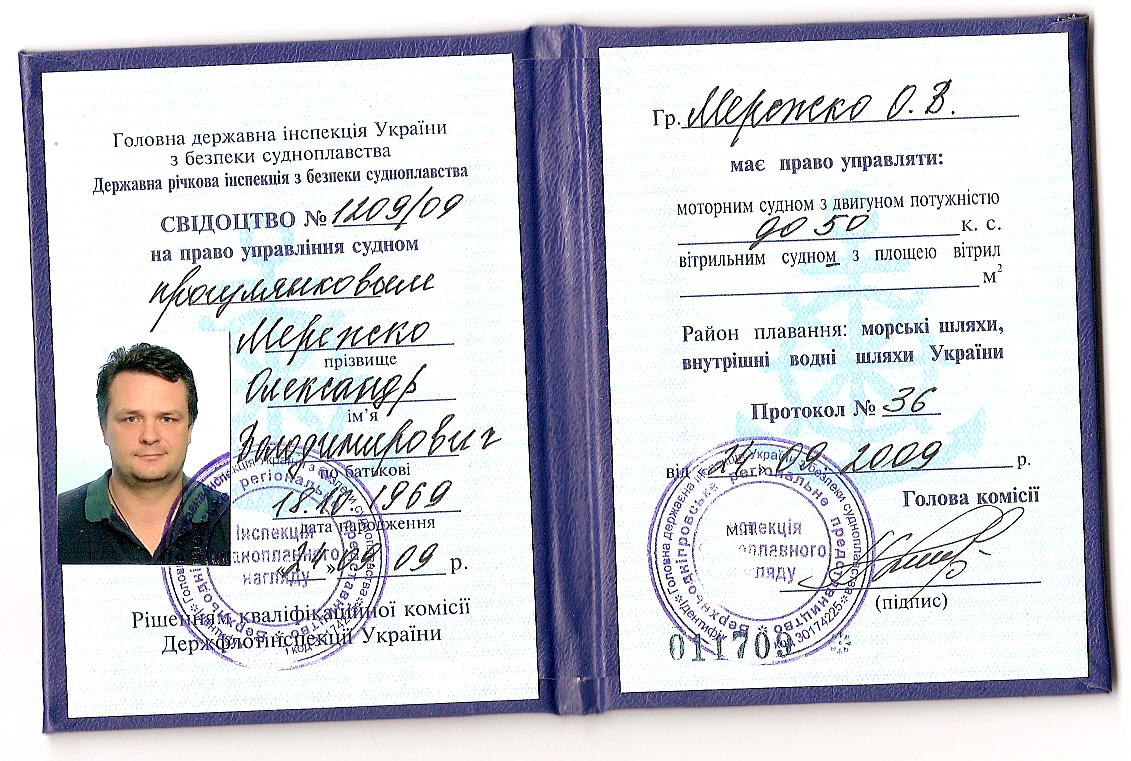 Головна державна інспекція України
з безпеки судноплавства
Державна річкова інспекція з безпеки судноплавства
СВІДОЦТВО № 1209/09
на право управління судном
прогулянковым
Мережко
прізвище
Олександр
ім'я
Володимирович
по батькові
18.10.1969
дата народження
«21» 09 09 р.
Рішенням кваліфікаційної комісії
Держфлотінспекції України
Інспекція
нагляду
Гр. Мережко О. В.
має право управляти:
моторним судном з двигуном потужністю
до 50 к. с.
вітрильним судном з площею вітрил
м²
Район плавання: морські шляхи,
внутрішні водні шляхи України
Протокол № 36
від 09. 2009 р.
Голова комісії
М.П.
(підпис)
регіональне представництво
30174225
011709